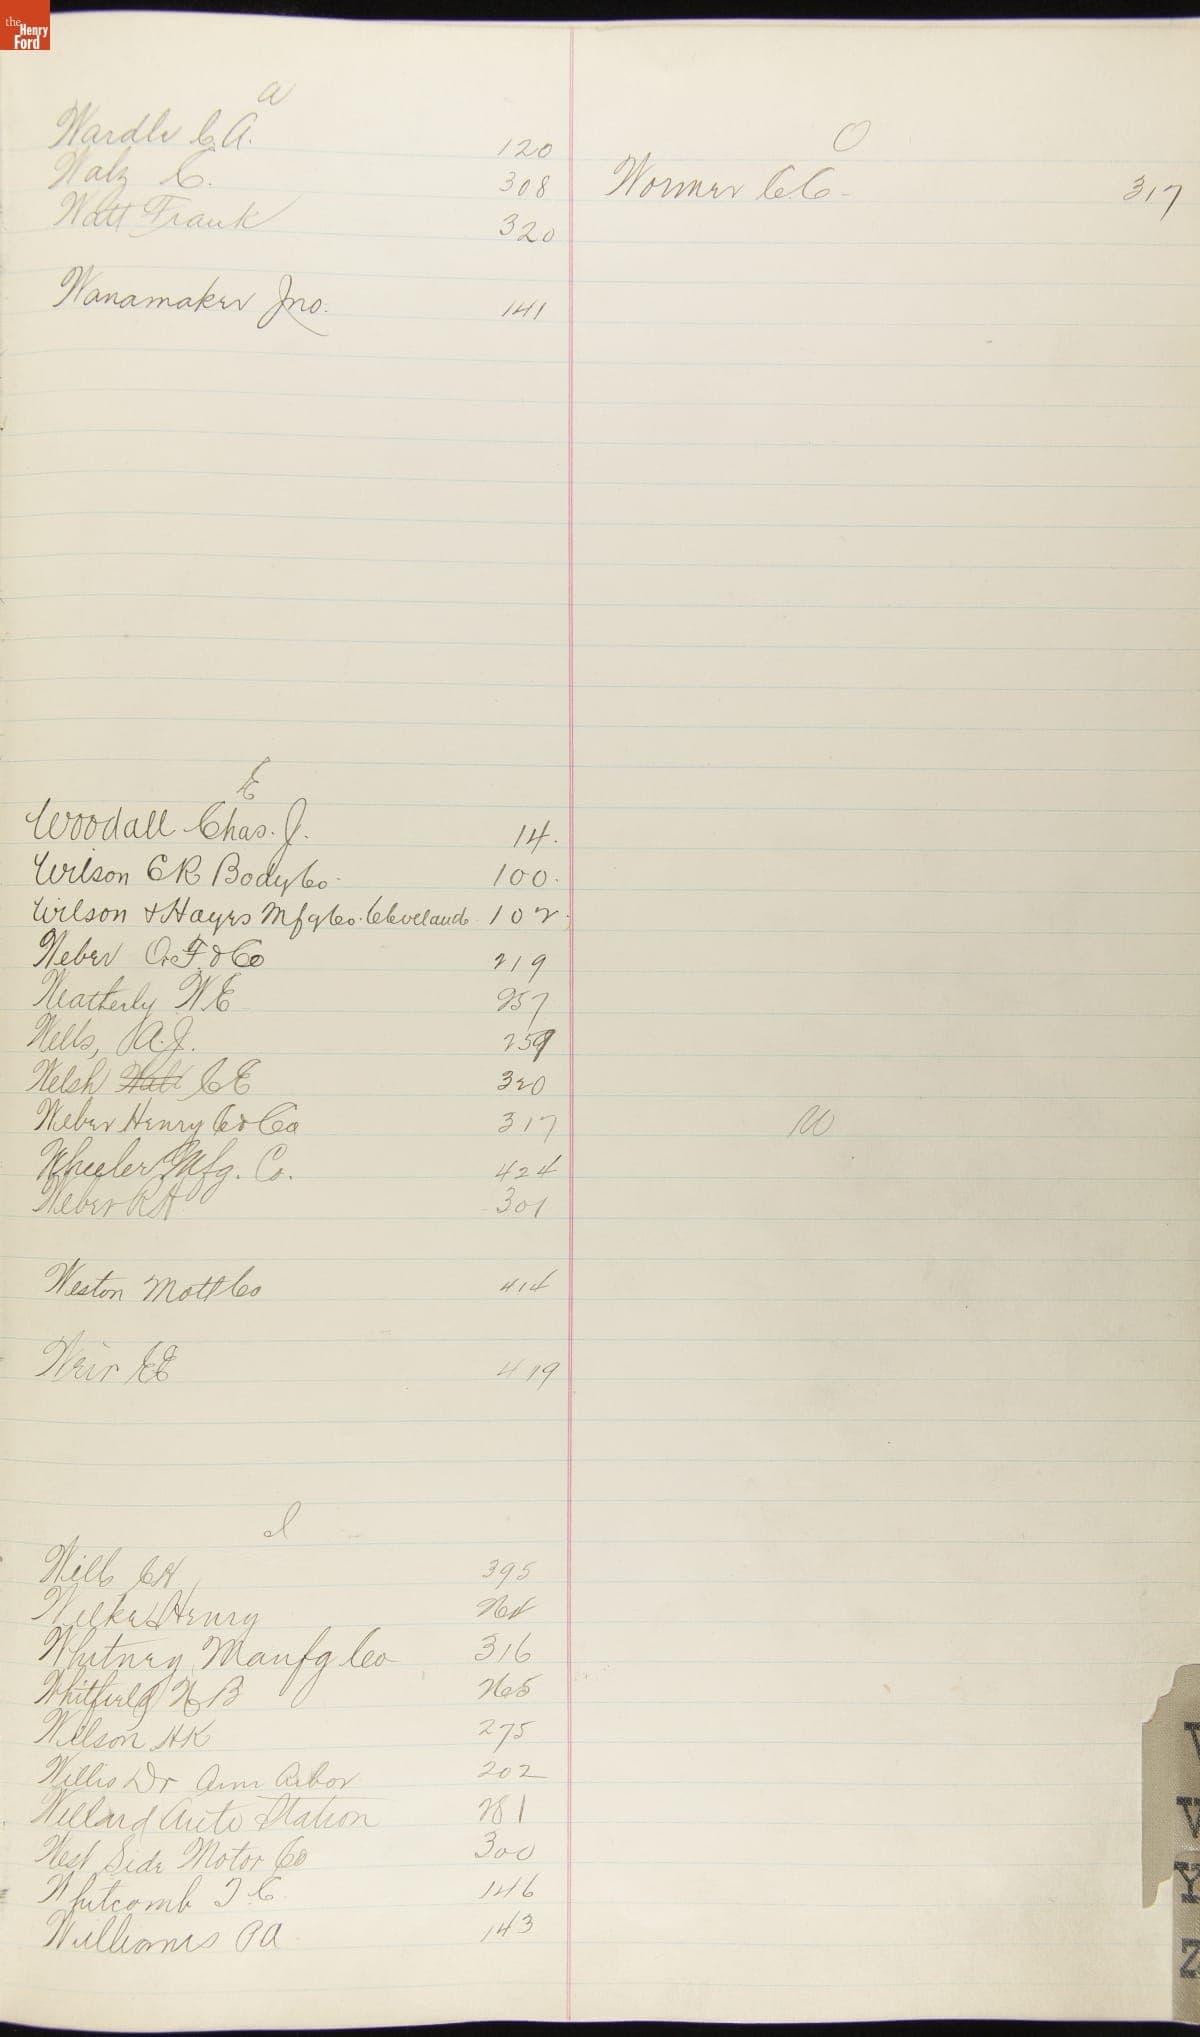 the Henry Ford
a
Wardle C.A. 120
Walz C. 308
Watt Frank 320
Wanamaker Jno. 141
E
Woodall Chas. J. 14.
Wilson CR Body Co. 100.
Wilson & Hayes Mfg Co. Cleveland 102.
Weber O.F. & Co 219
Weatherly W.E 257
Wells, A.J. 259
Welsh C E 320
Weber Henry Co 317
Wheeler Mfg. Co. 424
Weber R H 301
Weston Mott Co 414
Weir 419
I
Wills C H 395
Henry
Whitney Manfg Co 316
Whitfield B 265
Wilson H K 275
Willis Dr Ann Arbor 202
Willard Auto Station 281
West Side Motor Co 300
Whitcomb T C. 146
Williams P A 143
O
Wormer C.C. 317
W
Y
Z